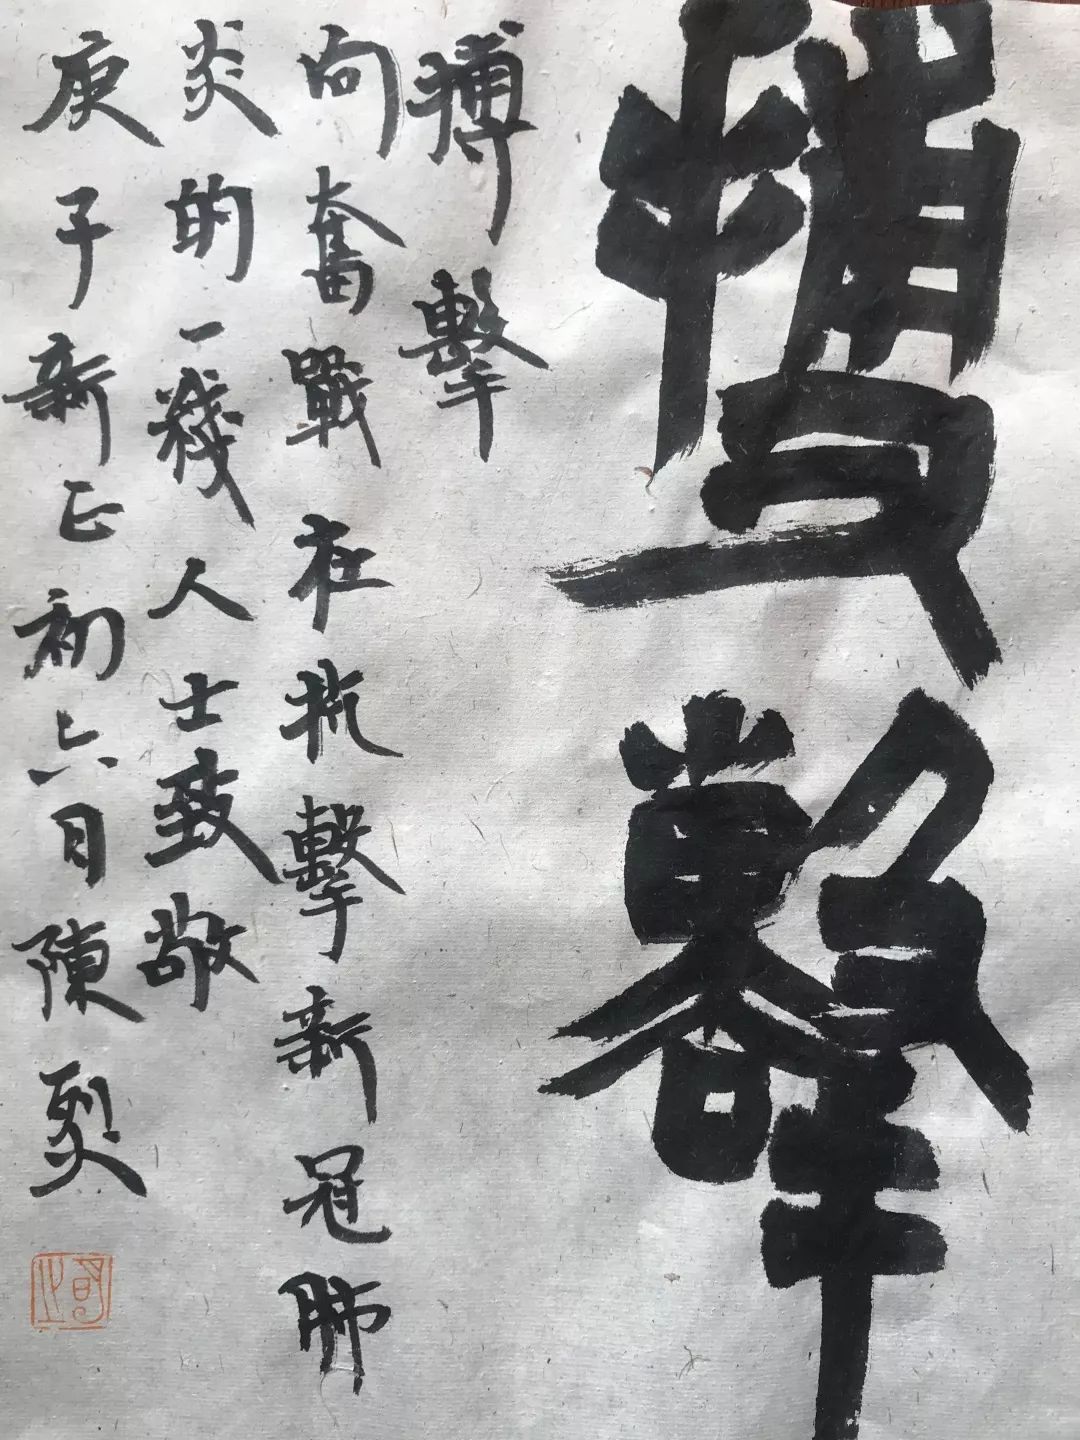 搏擊
搏擊
向奮戰在抗擊新冠肺
炎的一綫人士致敬
庚子新正初六日陳烈